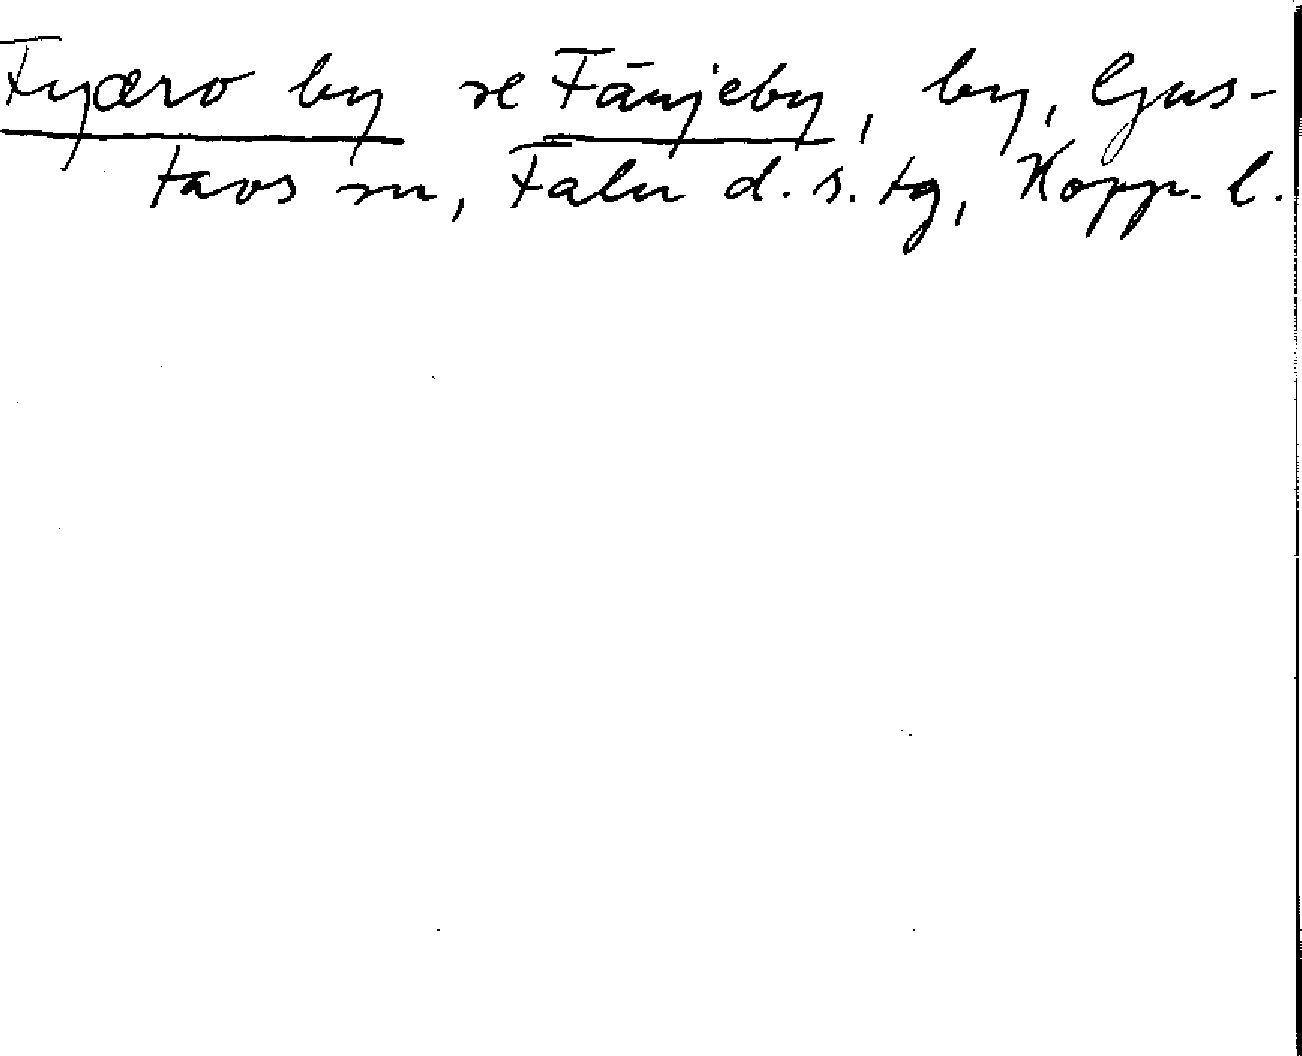 Fyæro by se Fänjeby, by, Gus-
tavs sn, Falu d. s. tg, Kopp. l.